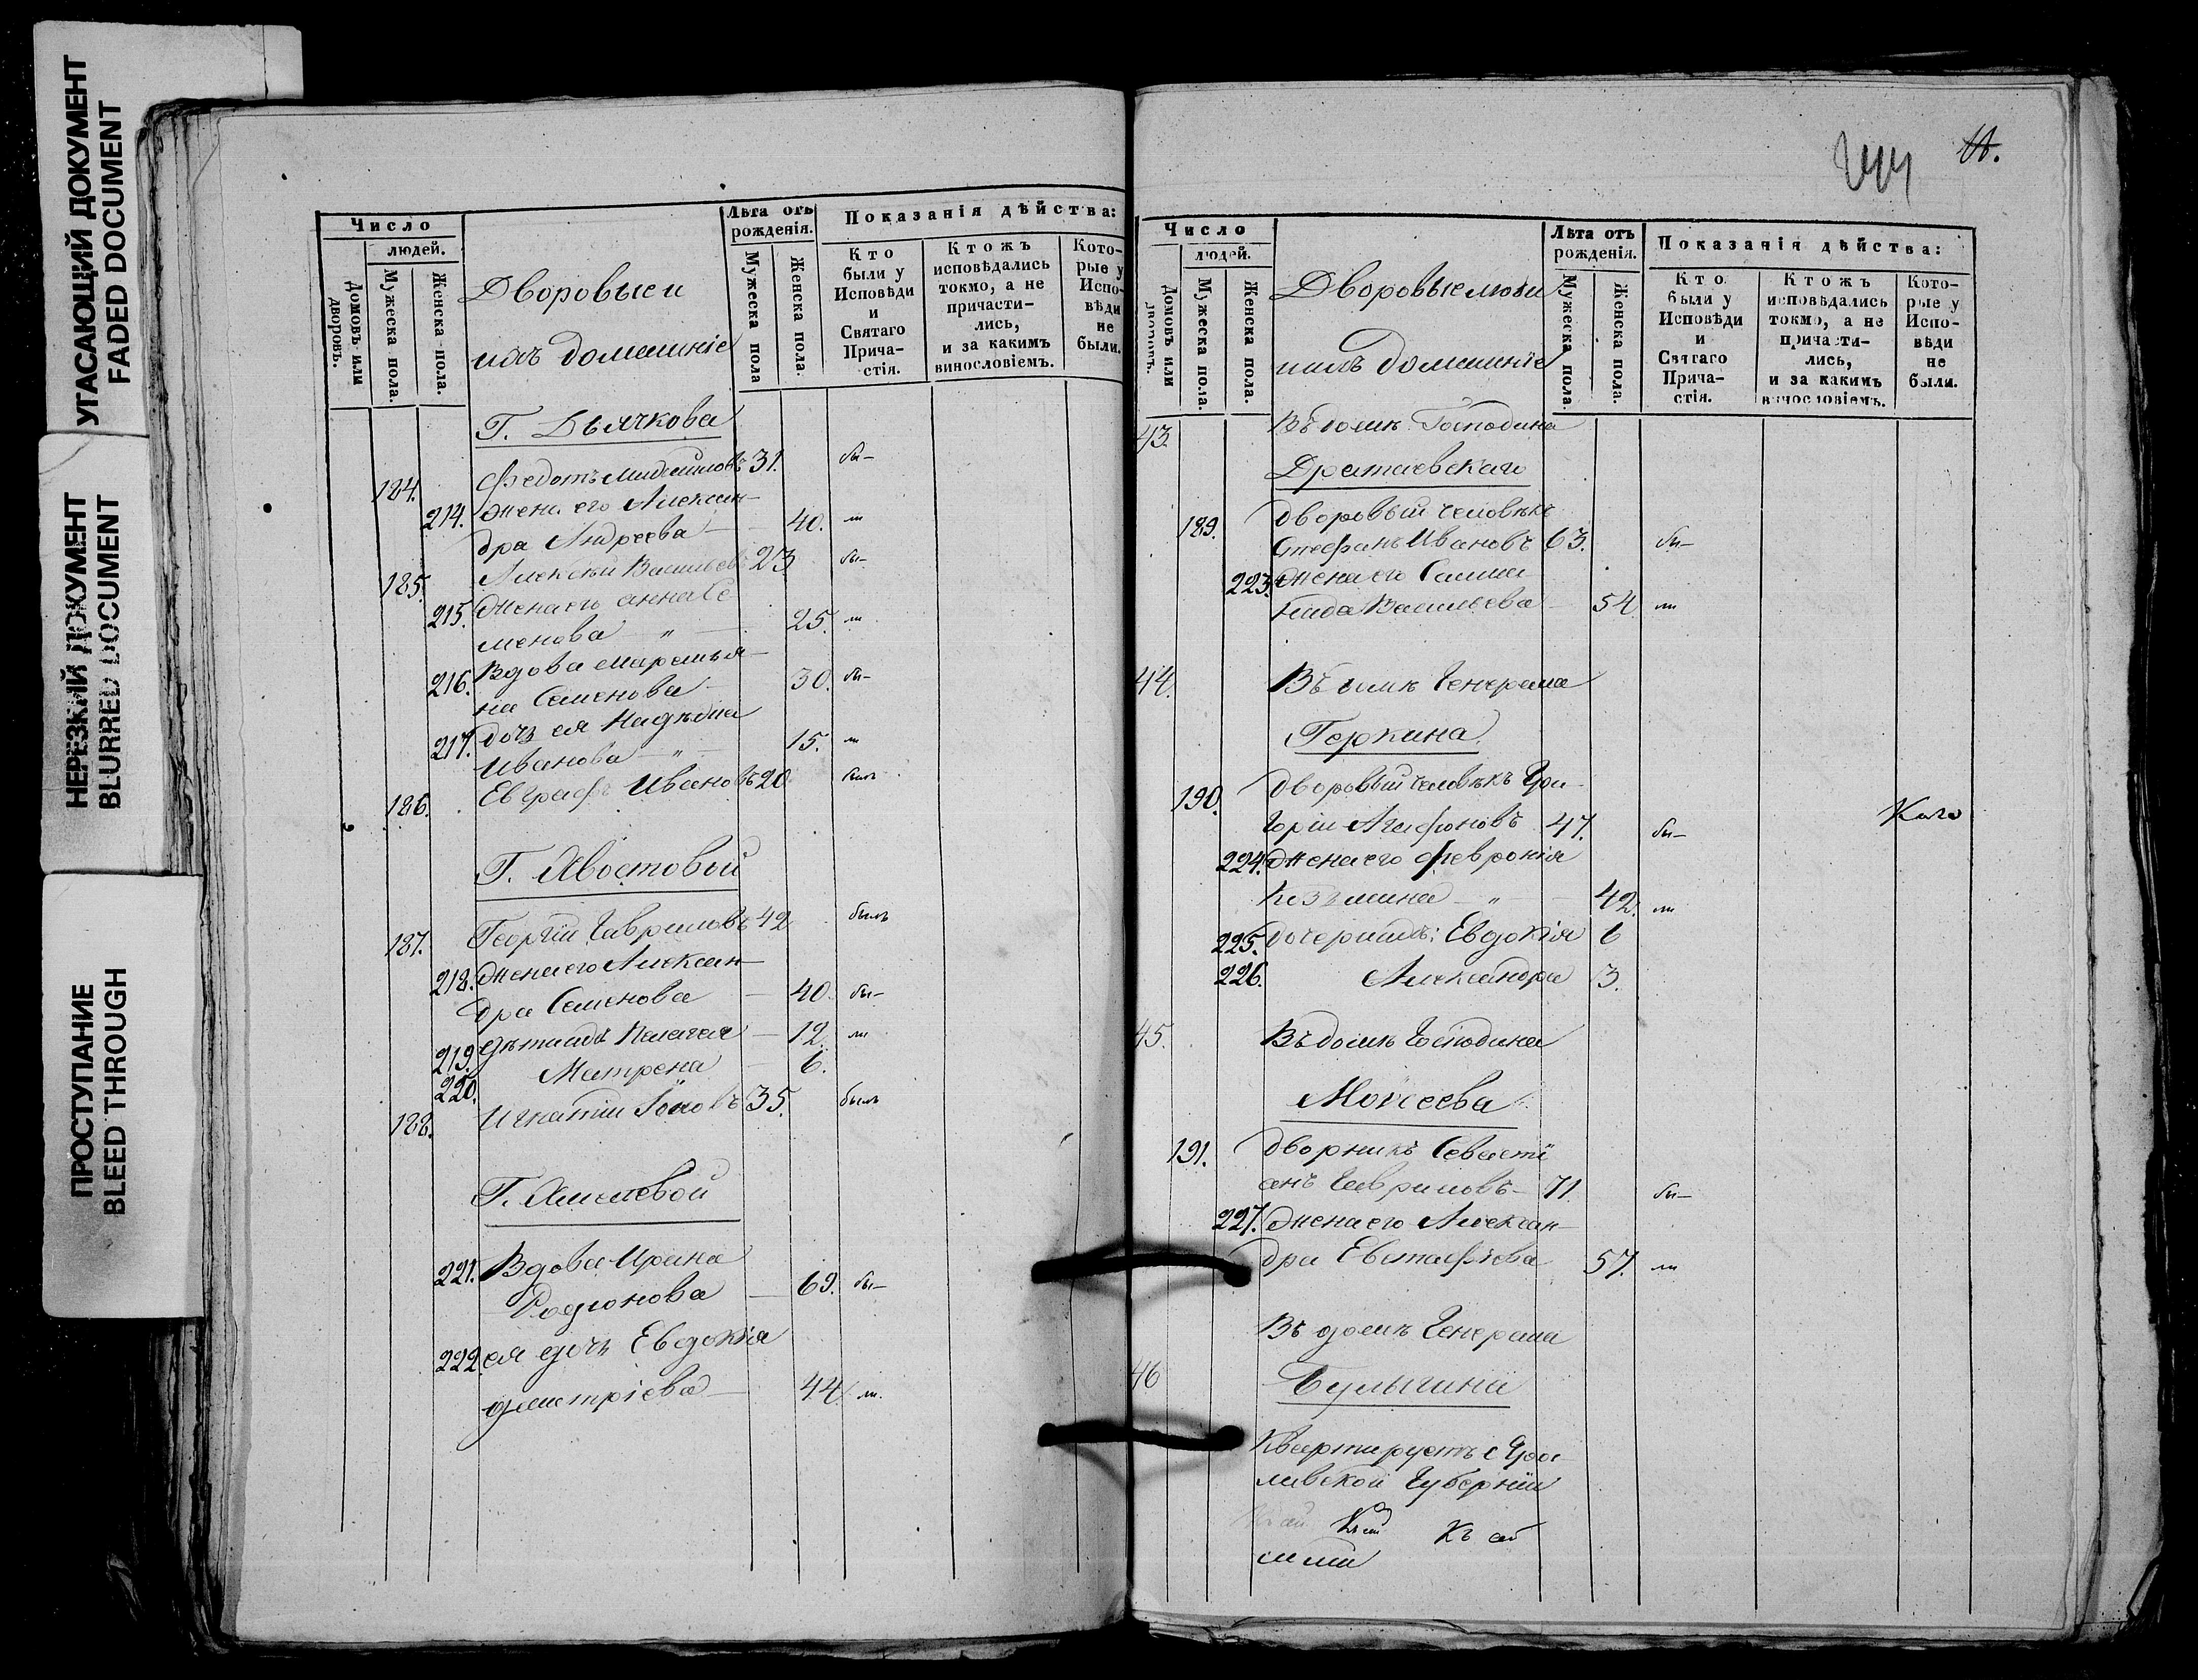 УГАСАЮЩИЙ ДОКУМЕНТ
FADED DOCUMENT
НЕРЕЗКИЙ ДОКУМЕНТ
BLURRED DOCUMENT
ПРОСТУПАНИЕ
BLEED THROUGH
Число
людей.
Домовъ или дворовъ.
Мужеска пола.
Женска пола.
Дворовые и
ихъ домашніе
Лѣта отъ рожденія.
Мужеска пола
Женска пола.
Показанія дѣйства:
Кто были у Исповѣди и Святаго Прича-стія.
Ктожъ исповѣдались токмо, а не причасти-лись, и за какимъ винословіемъ.
Кото-рые у Испо-вѣди не были.
Г. Дьячкова
184. Федотъ 31. бы-
214. жена его Алексан-
дра Андреева 40. ли
185. Алексѣй Васильевъ 23 бы-
215. жена его Анна Се
менова 25. ли
216. Вдова Маремья-
на Семенова 30. бы-
217. дочь ея Надежда
Иванова 15. ли
186. Евграфъ Ивановъ 20 былъ
Г. Хвостовой
187. Георгій Гавриловъ 42 былъ
218. жена его Алексан-
дра Семенова 40. бы-
219. Пелагея 12. ли
220. Матрена 6.
188. Игнатій 35. былъ
Г.
221. Вдова Ирина
Родионова 69. бы-
222. ея дочь Евдокія
Дмитріева 44. ли
Число
людей.
Домовъ или дворовъ.
Мужеска пола.
Женска пола.
Дворовые люди
ихъ домашніе
Лѣта отъ рожденія.
Мужеска пола.
Женска пола.
Показанія дѣйства:
Кто были у Исповѣди и Святаго Прича-стія.
Ктожъ исповѣдались токмо, а не причасти-лись, и за какимъ винословіемъ.
Кото-рые у Испо-вѣди не были.
43. Въ домѣ Господина
189. дворовый человѣкъ
Стефанъ Ивановъ 63. бы-
223. жена его
Васильева 54 ли
44. Въ домѣ Генерала
Геркина
190. дворовый человѣкъ Гри-
горій Агафоновъ 47. бы-
224. жена его Февронія
Козьмина 42. ли
225. дочери ихъ: Евдокія 6
226. Александра 3.
45. Въ домѣ Господина
Моисеева
191. дворникъ Севасті
анъ Гавриловъ 71. бы-
227. жена его Алексан-
дра Евстафіева 57. ли
Въ домѣ Генерала
46 Булыгина
Квартируетъ с Яро
славской Губерніи